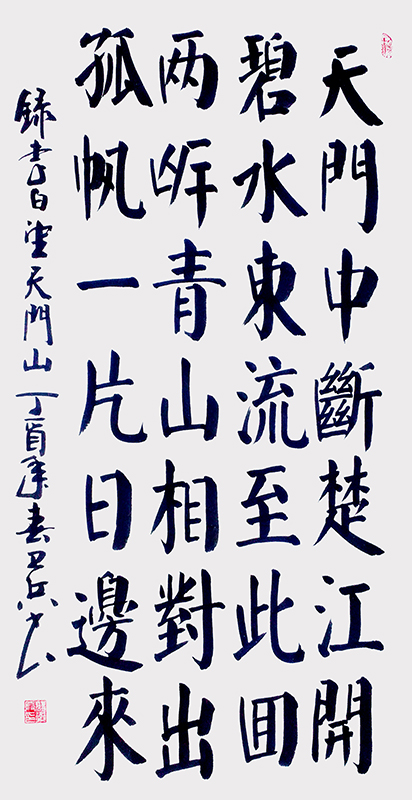 天門中斷楚江開
碧水東流至此回
两岸青山相對出
孤帆一片日邊來
録李白望天門山丁酉年春卫兵书